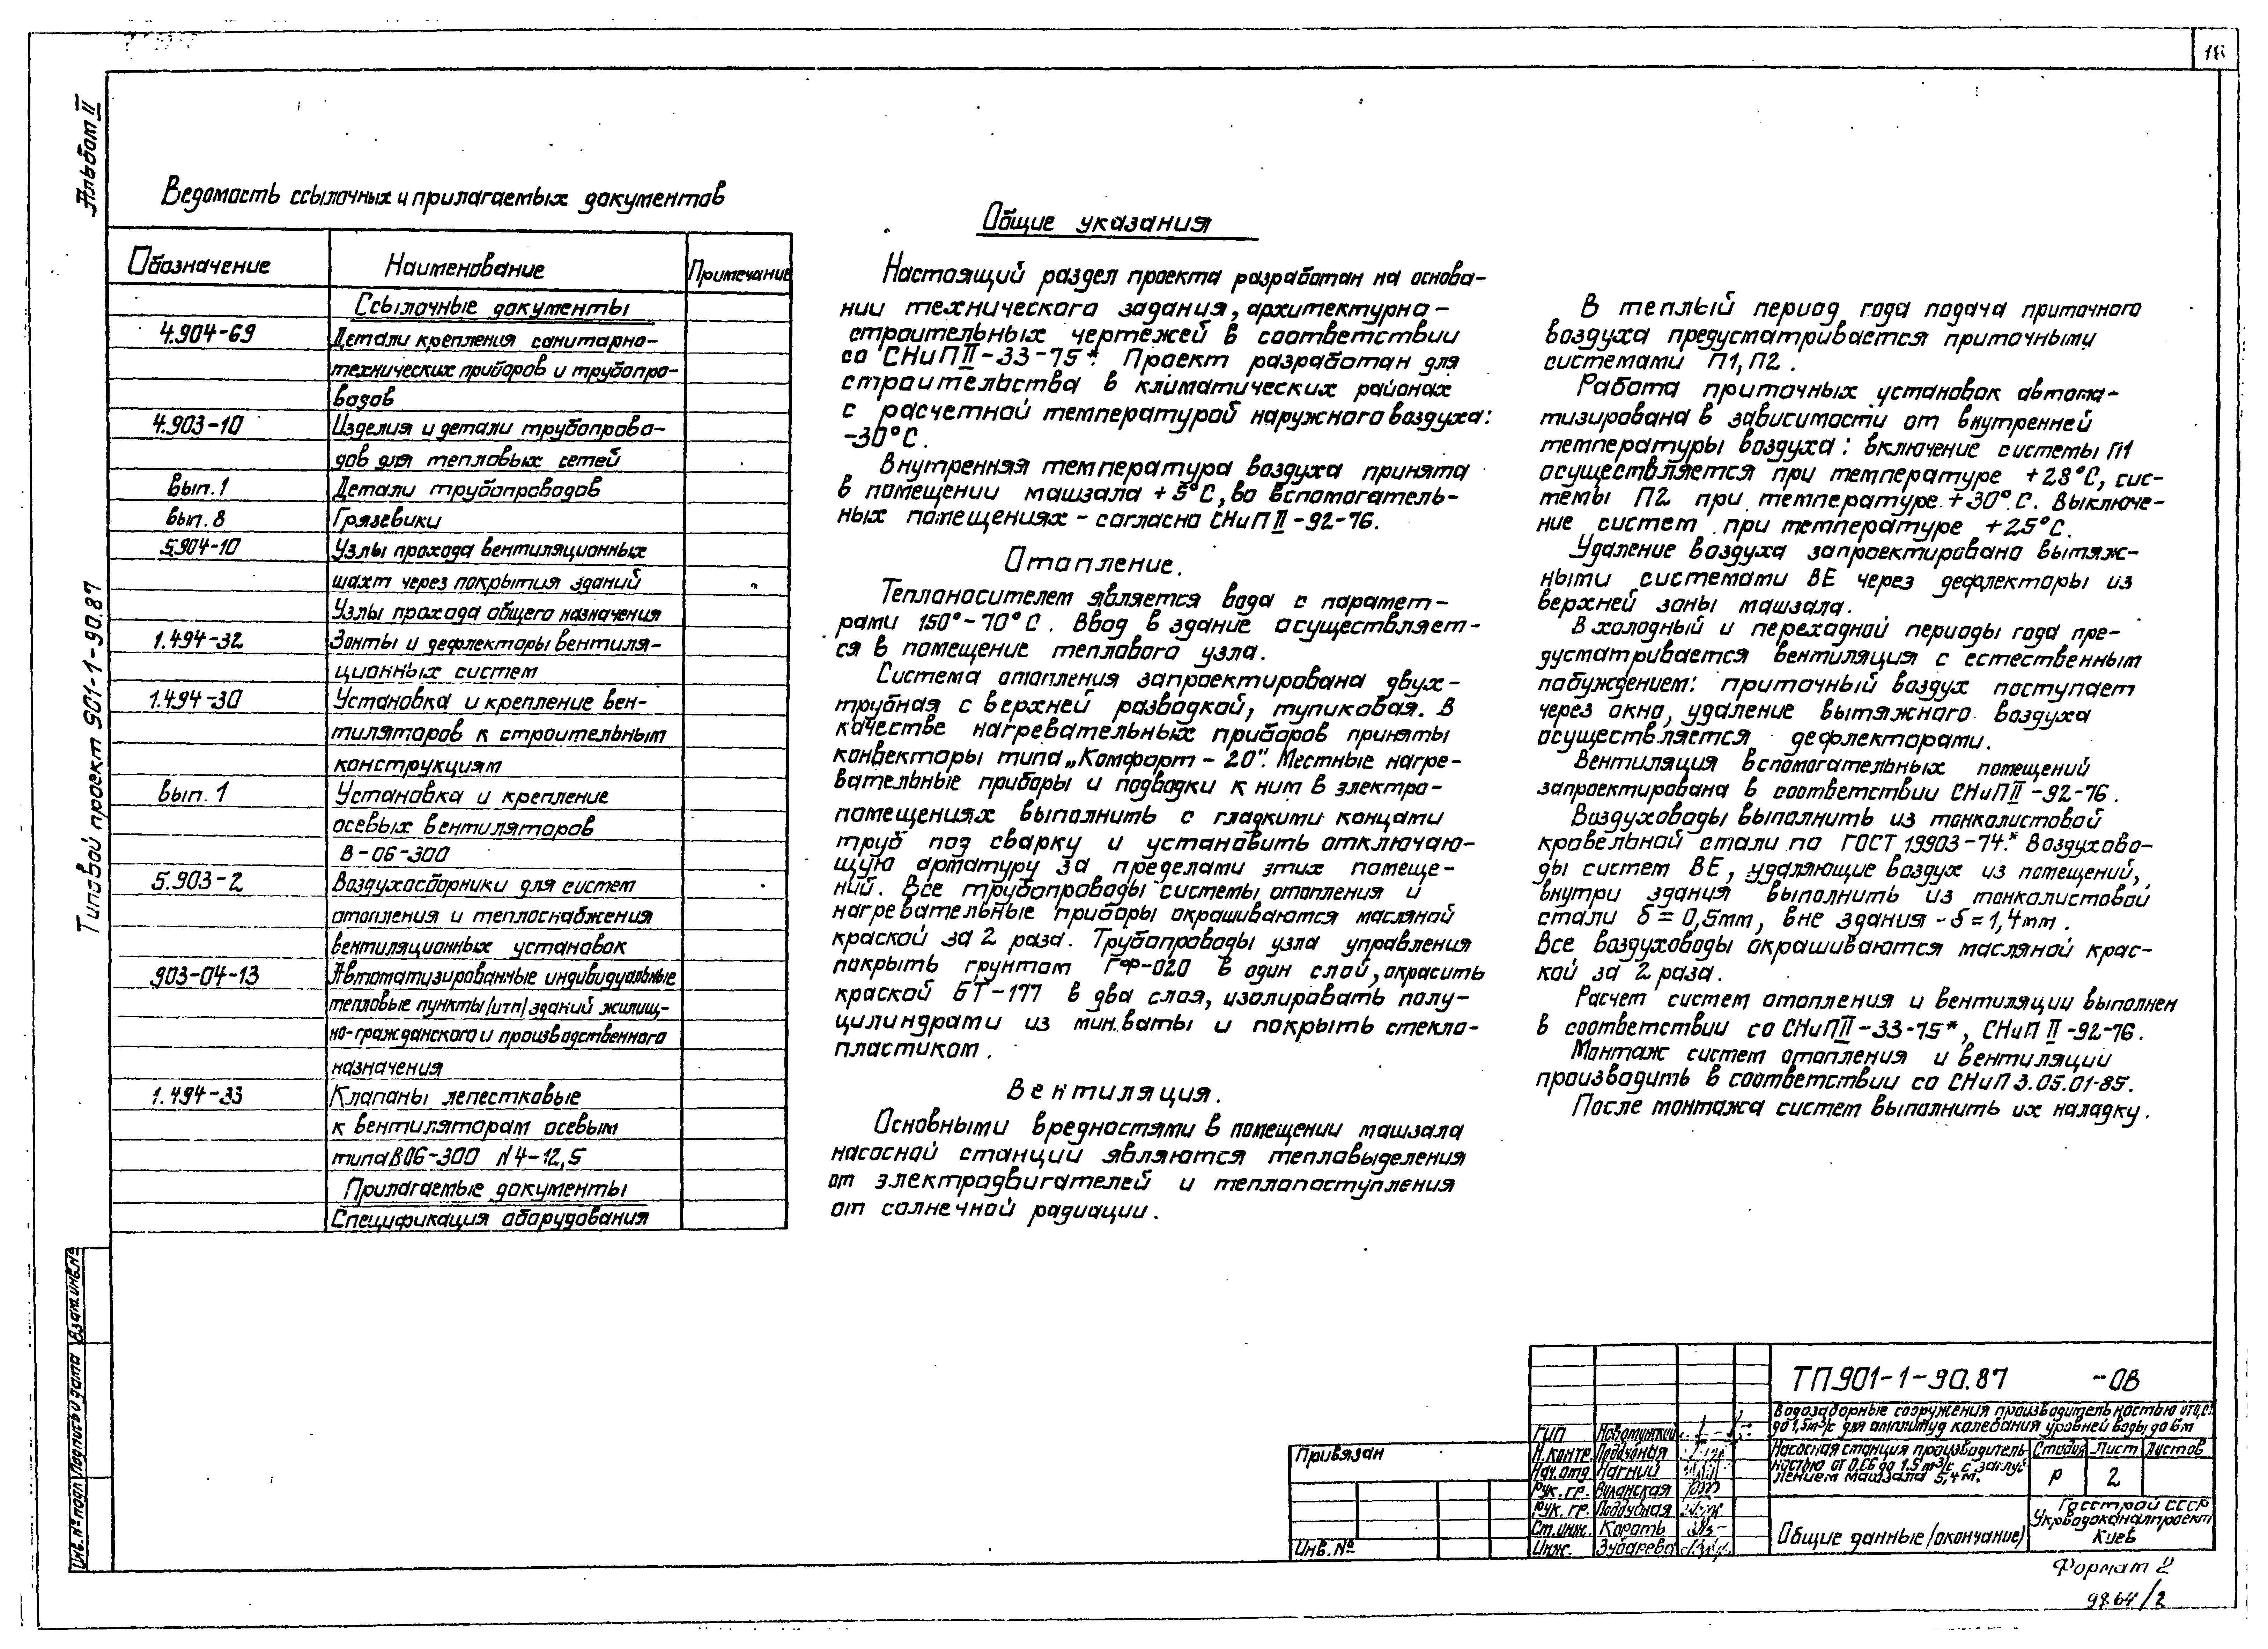 18
Альбом II
Типовой проект 901-1-90.87
Ведомость ссылочных и прилагаемых документов
Обозначение Наименование Примечание
Ссылочные документы
4.904-69 Детали крепления санитарно-
технических приборов и трубопро-
водов
4.903-10 Изделия и детали трубопрово-
дов для тепловых сетей
вып. 1 Детали трубопроводов
вып. 8 Грязевики
5.904-10 Узлы прохода вентиляционных
шахт через покрытия зданий
Узлы прохода общего назначения
1.494-32 Зонты и дефлекторы вентиля-
ционных систем
1.494-30 Установка и крепление вен-
тиляторов к строительным
конструкциям
вып. 1 Установка и крепление
осевых вентиляторов
В-06-300
5.903-2 Воздухосборники для систем
отопления и теплоснабжения
вентиляционных установок
903-04-13 Автоматизированные индивидуальные
тепловые пункты /итп/ зданий жилищ-
но-гражданского и производственного
назначения
1.494-33 Клапаны лепестковые
к вентиляторам осевым
типа В06-300 N4-12,5
Прилагаемые документы
Спецификация оборудования
Общие указания
Настоящий раздел проекта разработан на основа-
нии технического задания, архитектурно-
строительных чертежей в соответствии
со СНиП II-33-75*. Проект разработан для
строительства в климатических районах
с расчетной температурой наружного воздуха:
-30°С.
Внутренняя температура воздуха принята
в помещении машзала +5°С, во вспомогатель-
ных помещениях - согласно СНиП II-92-76.
Отопление.
Теплоносителем является вода с парамет-
рами 150°-70°С. Ввод в здание осуществляет-
ся в помещение теплового узла.
Система отопления запроектирована двух-
трубная с верхней разводкой, тупиковая. В
качестве нагревательных приборов приняты
конвекторы типа „Комфорт - 20". Местные нагре-
вательные приборы и подводки к ним в электро-
помещениях выполнить с гладкими концами
труб под сварку и установить отключаю-
щую арматуру за пределами этих помеще-
ний. Все трубопроводы системы отопления и
нагревательные приборы окрашиваются масляной
краской за 2 раза. Трубопроводы узла управления
покрыть грунтом ГФ-020 в один слой, окрасить
краской БТ-177 в два слоя, изолировать полу-
цилиндрами из мин.ваты и покрыть стекло-
пластиком.
Вентиляция.
Основными вредностями в помещении машзала
насосной станции являются тепловыделения
от электродвигателей и теплопоступления
от солнечной радиации.
В теплый период года подача приточного
воздуха предусматривается приточными
системами П1, П2.
Работа приточных установок автома-
тизирована в зависимости от внутренней
температуры воздуха: включение системы П1
осуществляется при температуре +28°С, сис-
темы П2 при температуре +30°С. Выключе-
ние систем при температуре +25°С.
Удаление воздуха запроектировано вытяж-
ными системами ВЕ через дефлекторы из
верхней зоны машзала.
В холодный и переходной периоды года пре-
дусматривается вентиляция с естественным
побуждением: приточный воздух поступает
через окно, удаление вытяжного воздуха
осуществляется дефлекторами.
Вентиляция вспомогательных помещений
запроектирована в соответствии СНиП II-92-76.
Воздуховоды выполнить из тонколистовой
кровельной стали по ГОСТ 19903-74*. Воздухово-
ды систем ВЕ, удаляющие воздух из помещений,
внутри здания выполнить из тонколистовой
стали δ = 0,5мм, вне здания - δ = 1,4мм.
Все воздуховоды окрашиваются масляной крас-
кой за 2 раза.
Расчет систем отопления и вентиляции выполнен
в соответствии со СНиП II-33-75*, СНиП II-92-76.
Монтаж систем отопления и вентиляции
производить в соответствии со СНиП 3.05.01-85.
После монтажа систем выполнить их наладку.
Взам.инв.№
Подпись и дата
Инв.№ подл
Привязан
Инв.№
ГИП
Н.контр. Поддубная
Нач.отд. Нагний
Рук. гр. Виланская
Рук. гр. Поддубная
Ст.инж. Короть
Инж. Зубарева
ТП 901-1-90.87 -ОВ
Водозаборные сооружения производительностью от
до 1,5м³/с для амплитуд колебания уровней воды до 6м
Насосная станция производитель-
ностью от 0,66 до 1,5 м³/с с заглуб-
лением машзала 5,4м.
Стадия Лист Листов
Р 2
Общие данные /окончание/
Госстрой СССР
Укрводоканалпроект
Киев
Формат 2
9864/2